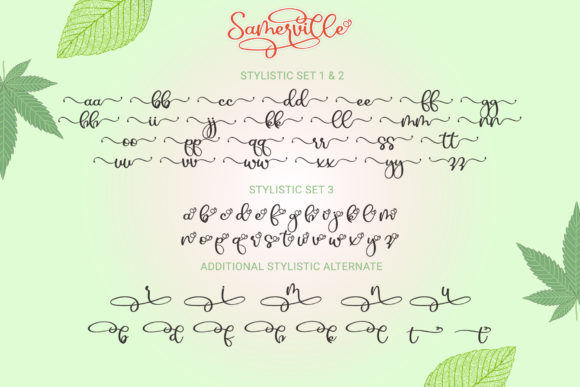 Samerville
STYLISTIC SET 1 & 2
aa bb cc dd ee ff gg
bb ii jj kk ll mm nn
oo pp qq rr ss tt
uu vv ww xx yy zz
STYLISTIC SET 3
a b c d e f g h i j k l m
n o p q r s t u v w x y z
ADDITIONAL STYLISTIC ALTERNATE
r i m n u
b d f h k l t t